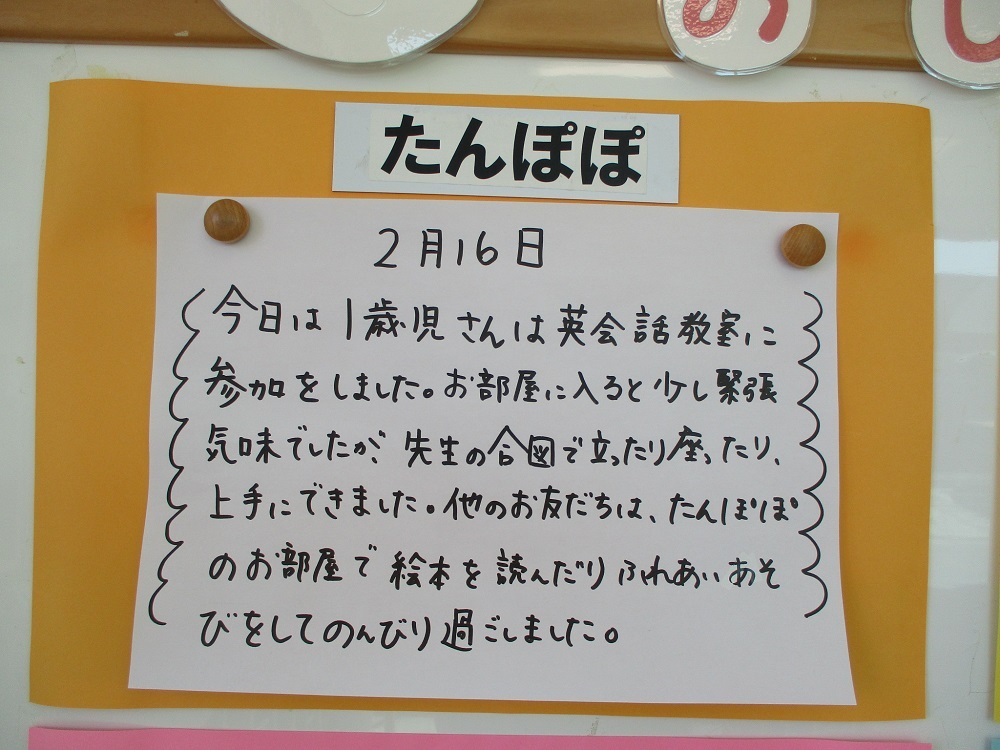 お
し
たんぽぽ
2月16日
今日は1歳児さんは英会話教室に
参加をしました。お部屋に入ると少し緊張
気味でしたが、先生の合図で立ったり座ったり、
上手にできました。他のお友だちは、たんぽぽ
のお部屋で絵本を読んだりふれあいあそ
びをしてのんびり過ごしました。